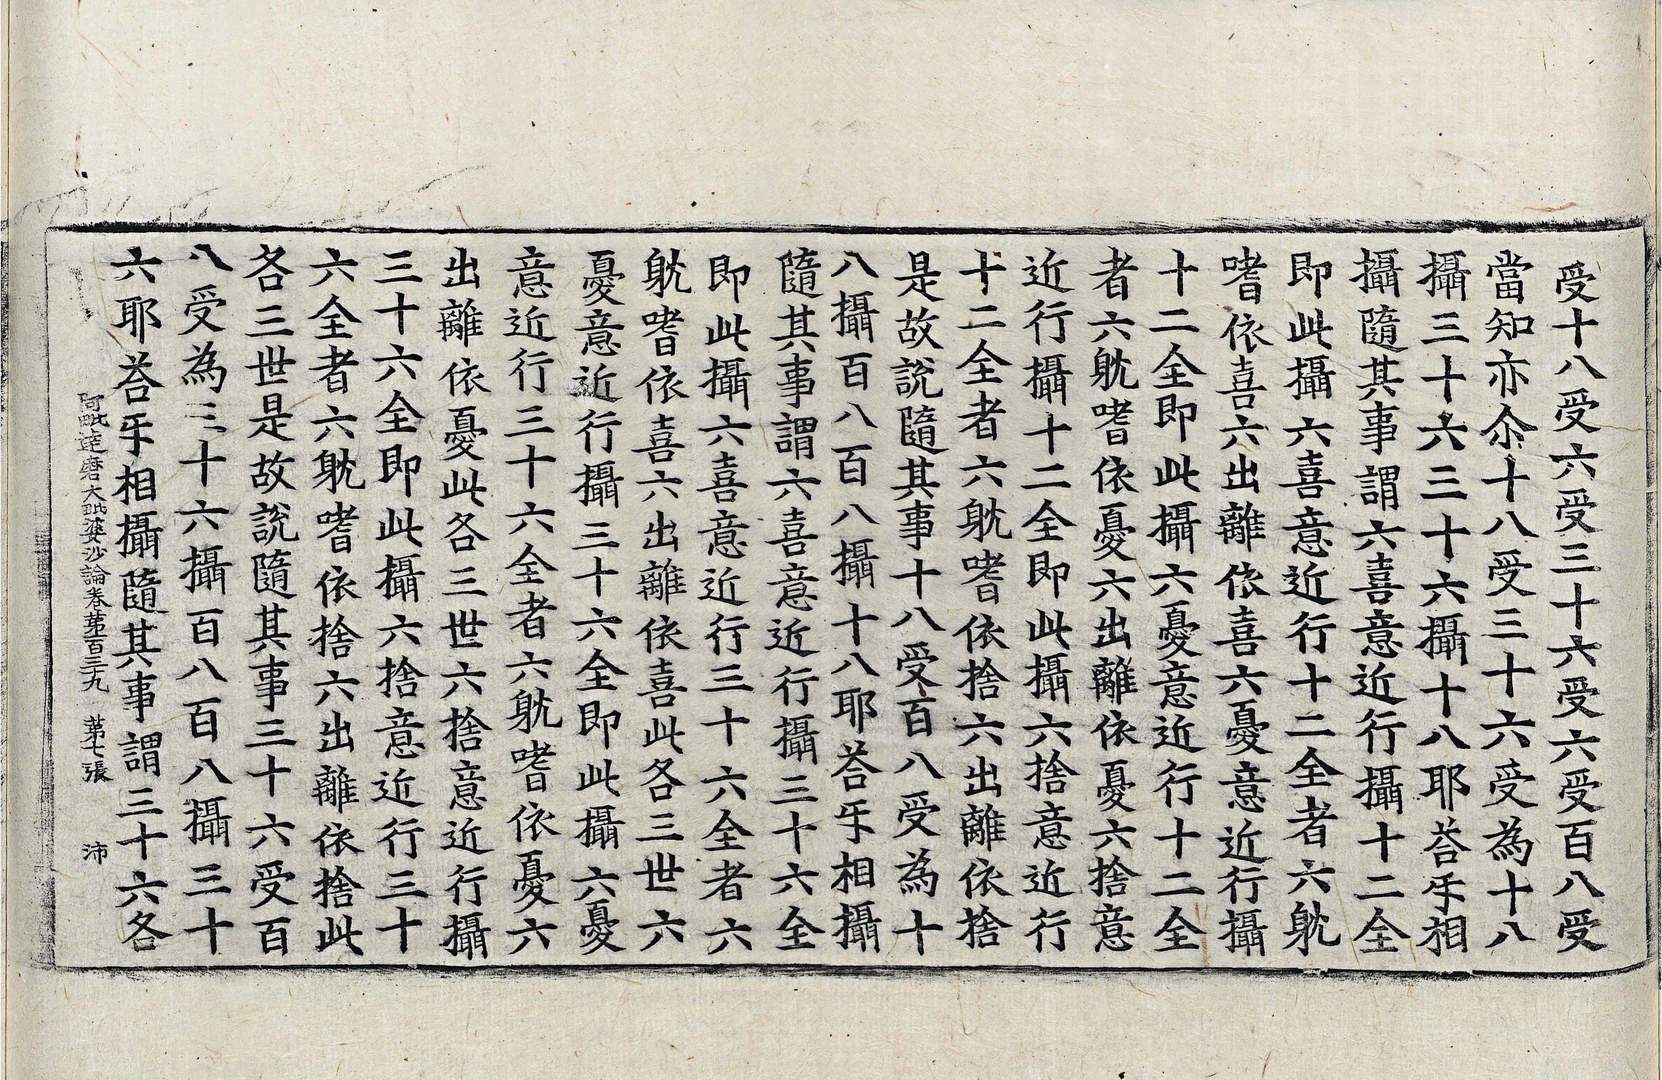 受十八受六受三十六受六受百八受
當知亦尒十八受三十六受為十八
攝三十六三十六攝十八耶荅乎相
攝隨其事謂六喜意近行攝十二全
即此攝六喜意近行十二全者六躭
嗜依喜六出離依喜六憂意近行攝
十二全即此攝六憂意近行十二全
者六躭嗜依憂六出離依憂六捨意
近行攝十二全即此攝六捨意近行
十二全者六躭嗜依捨六出離依捨
是故說隨其事十八受百八受為十
八攝百八百八攝十八耶荅乎相攝
隨其事謂六喜意近行攝三十六全
即此攝六喜意近行三十六全者六
躭嗜依喜六出離依喜此各三世六
憂意近行攝三十六全即此攝六憂
意近行三十六全者六躭嗜依憂六
出離依憂此各三世六捨意近行攝
三十六全即此攝六捨意近行三十
六全者六躭嗜依捨六出離依捨此
各三世是故說隨其事三十六受百
八受為三十六攝百八百八攝三十
六耶荅乎相攝隨其事謂三十六各
阿毗達磨大毗婆沙論卷第百三十九 第七張 沛